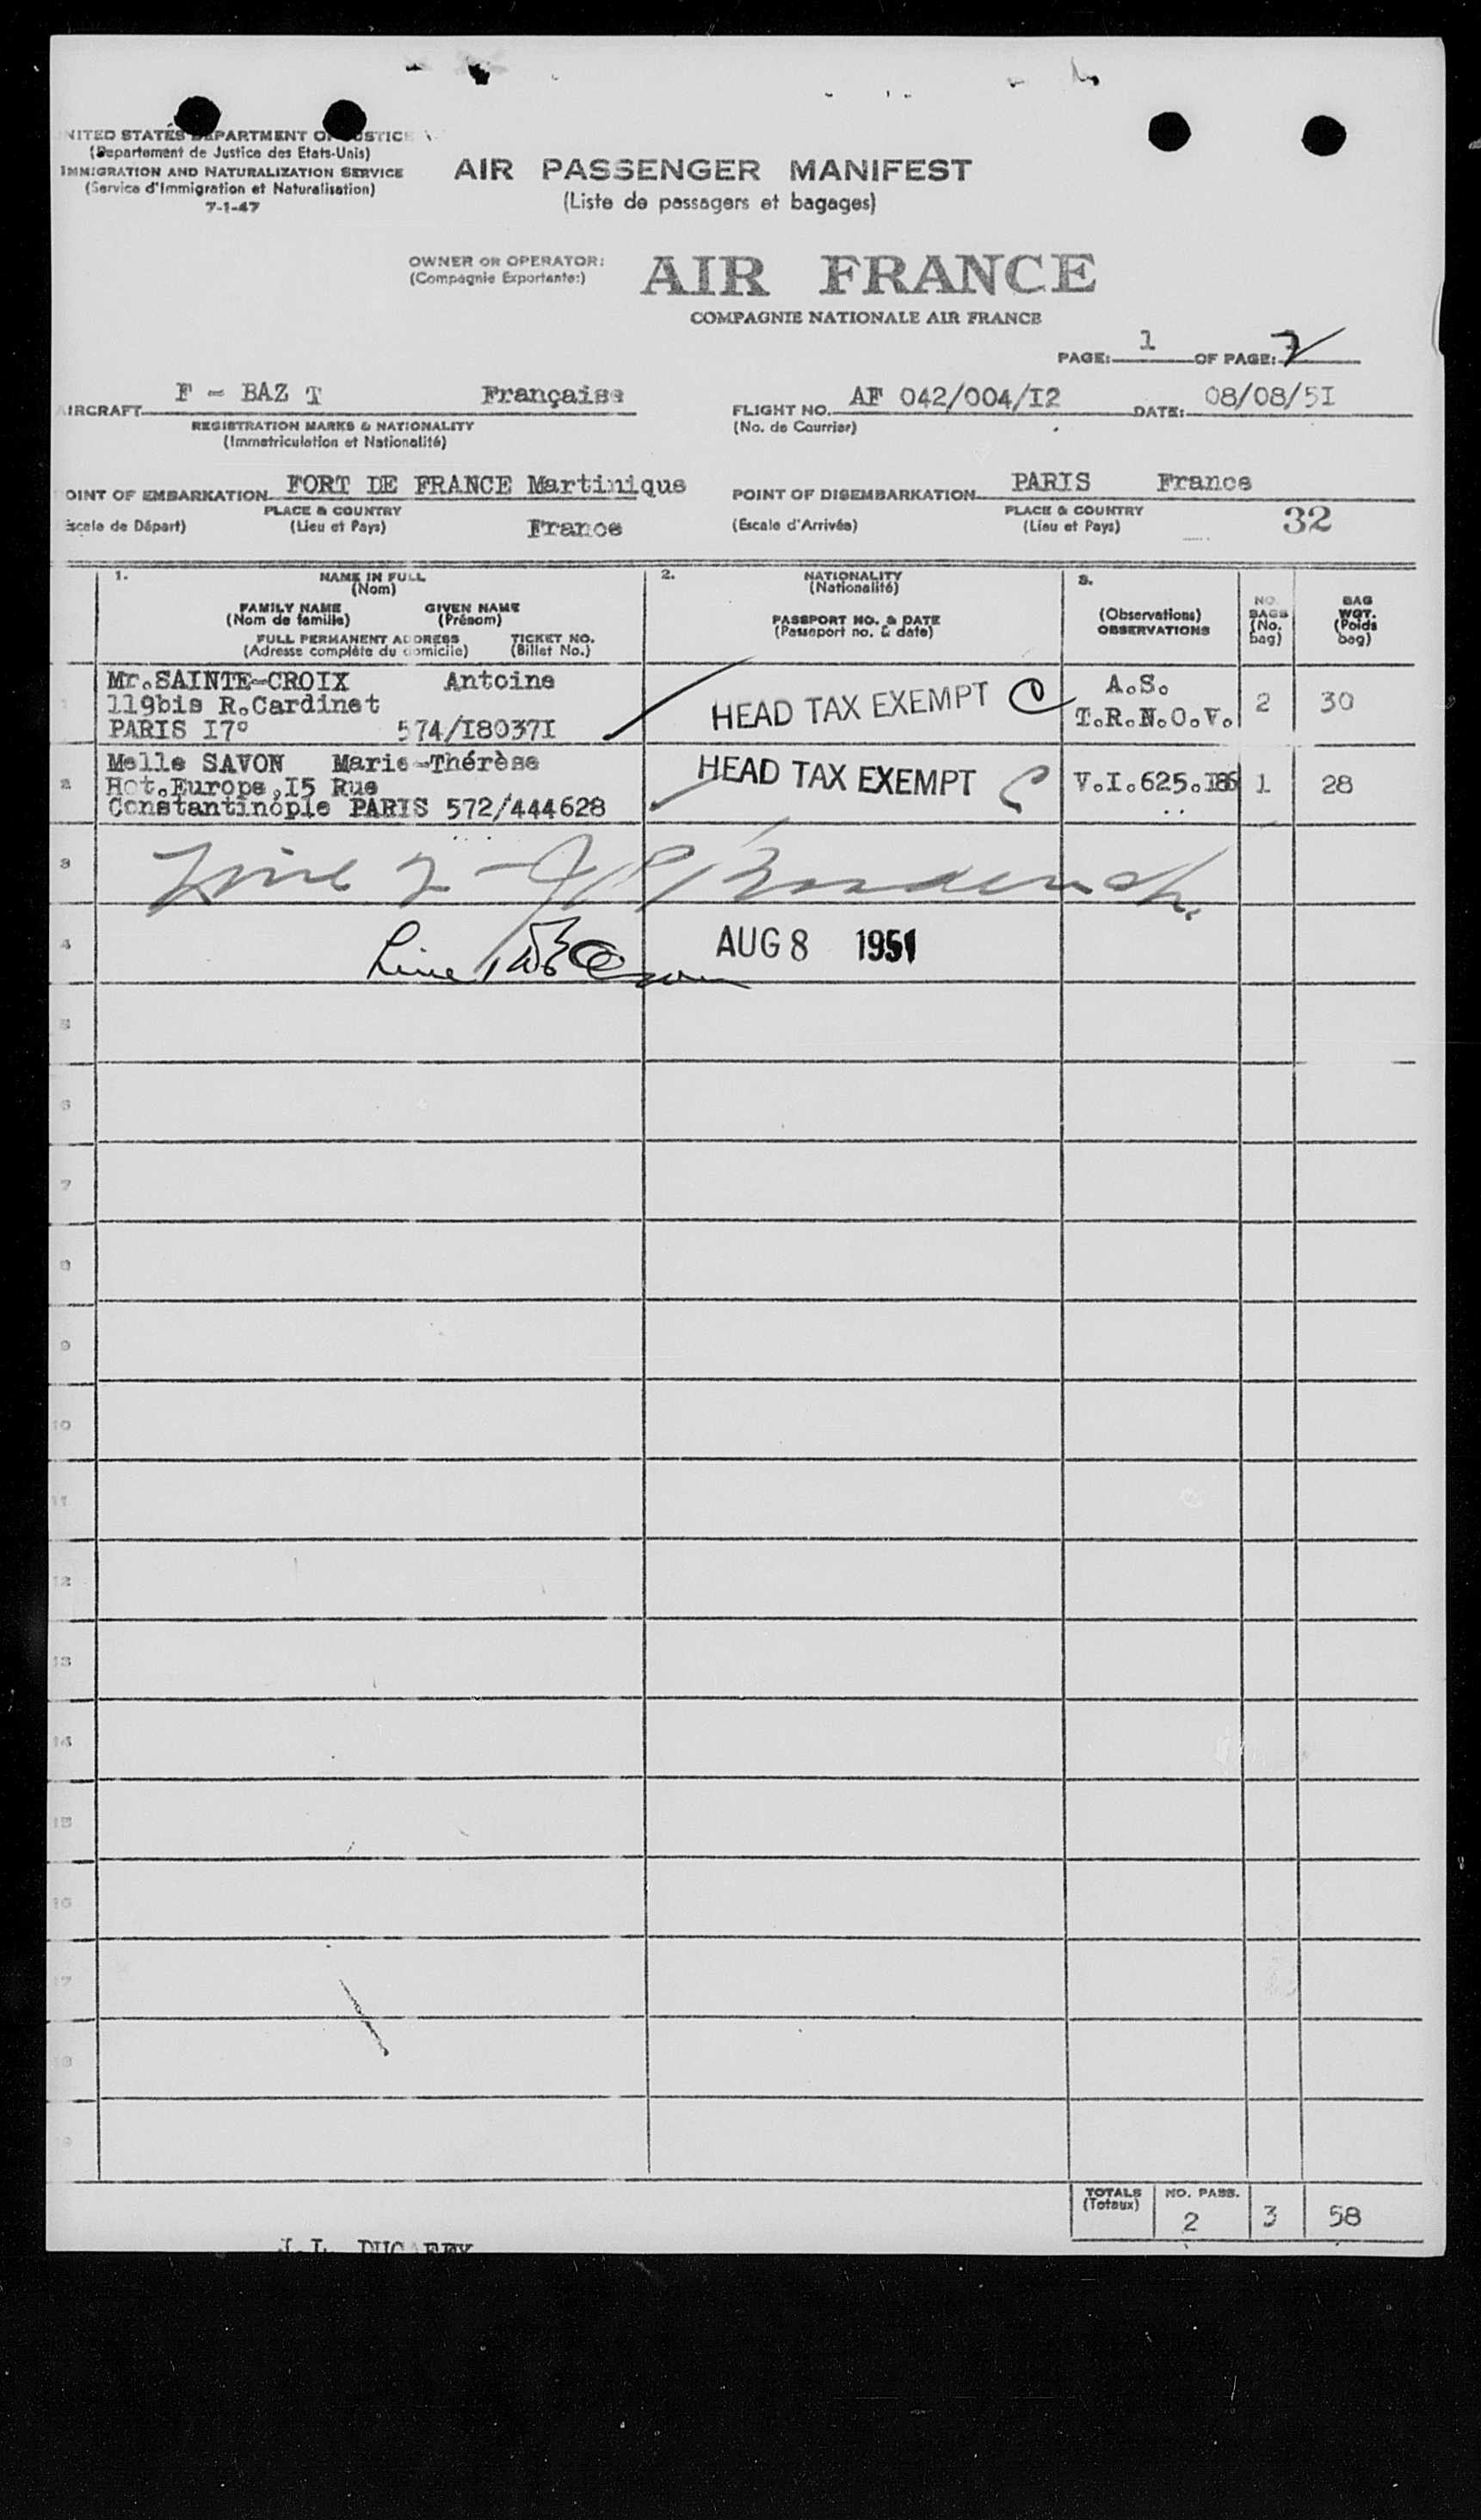 UNITED STATES DEPARTMENT OF JUSTICE
(Departement de Justice des Etats-Unis)
IMMIGRATION AND NATURALIZATION SERVICE
(Service d'Immigration et Naturalisation)
7-1-47
AIR PASSENGER MANIFEST
(Liste de passagers et bagages)
OWNER OR OPERATOR:
(Compagnie Exportante:)
AIR FRANCE
COMPAGNIE NATIONALE AIR FRANCE
PAGE: 1 OF PAGE:
AIRCRAFT F - BAZ T Française
REGISTRATION MARKS & NATIONALITY
(Immatriculation et Nationalité)
FLIGHT NO. AF 042/004/I2 DATE: 08/08/5I
(No. de Courrier)
POINT OF EMBARKATION FORT DE FRANCE Martinique
PLACE & COUNTRY
(Escale de Départ) (Lieu et Pays) France
POINT OF DISEMBARKATION PARIS France
PLACE & COUNTRY
(Escale d'Arrivée) (Lieu et Pays) 32
1. NAME IN FULL
(Nom)
FAMILY NAME GIVEN NAME
(Nom de famille) (Prénom)
FULL PERMANENT ADDRESS TICKET NO.
(Adresse complète du domicile) (Billet No.)
2. NATIONALITY
(Nationalité)
PASSPORT NO. & DATE
(Passeport no. & date)
3.
(Observations)
OBSERVATIONS
NO.
BAGS
(No.
bag)
BAG
WGT.
(Poids
bag)
1
Mr.SAINTE-CROIX Antoine
119bis R.Cardinet
PARIS I7° 574/I8037I
HEAD TAX EXEMPT C
A.S.
T.R.N.O.V.
2 30
2
Melle SAVON Marie-Thérèse
Hot.Europe,I5 Rue
Constantinople PARIS 572/444628
HEAD TAX EXEMPT C
V.I.625.I86
1 28
3
Line 2 -
4
Line 1
AUG 8 1951
5
6
7
8
9
10
11
12
13
14
15
16
17
18
19
TOTALS
(Totaux)
NO. PASS.
2 3 58